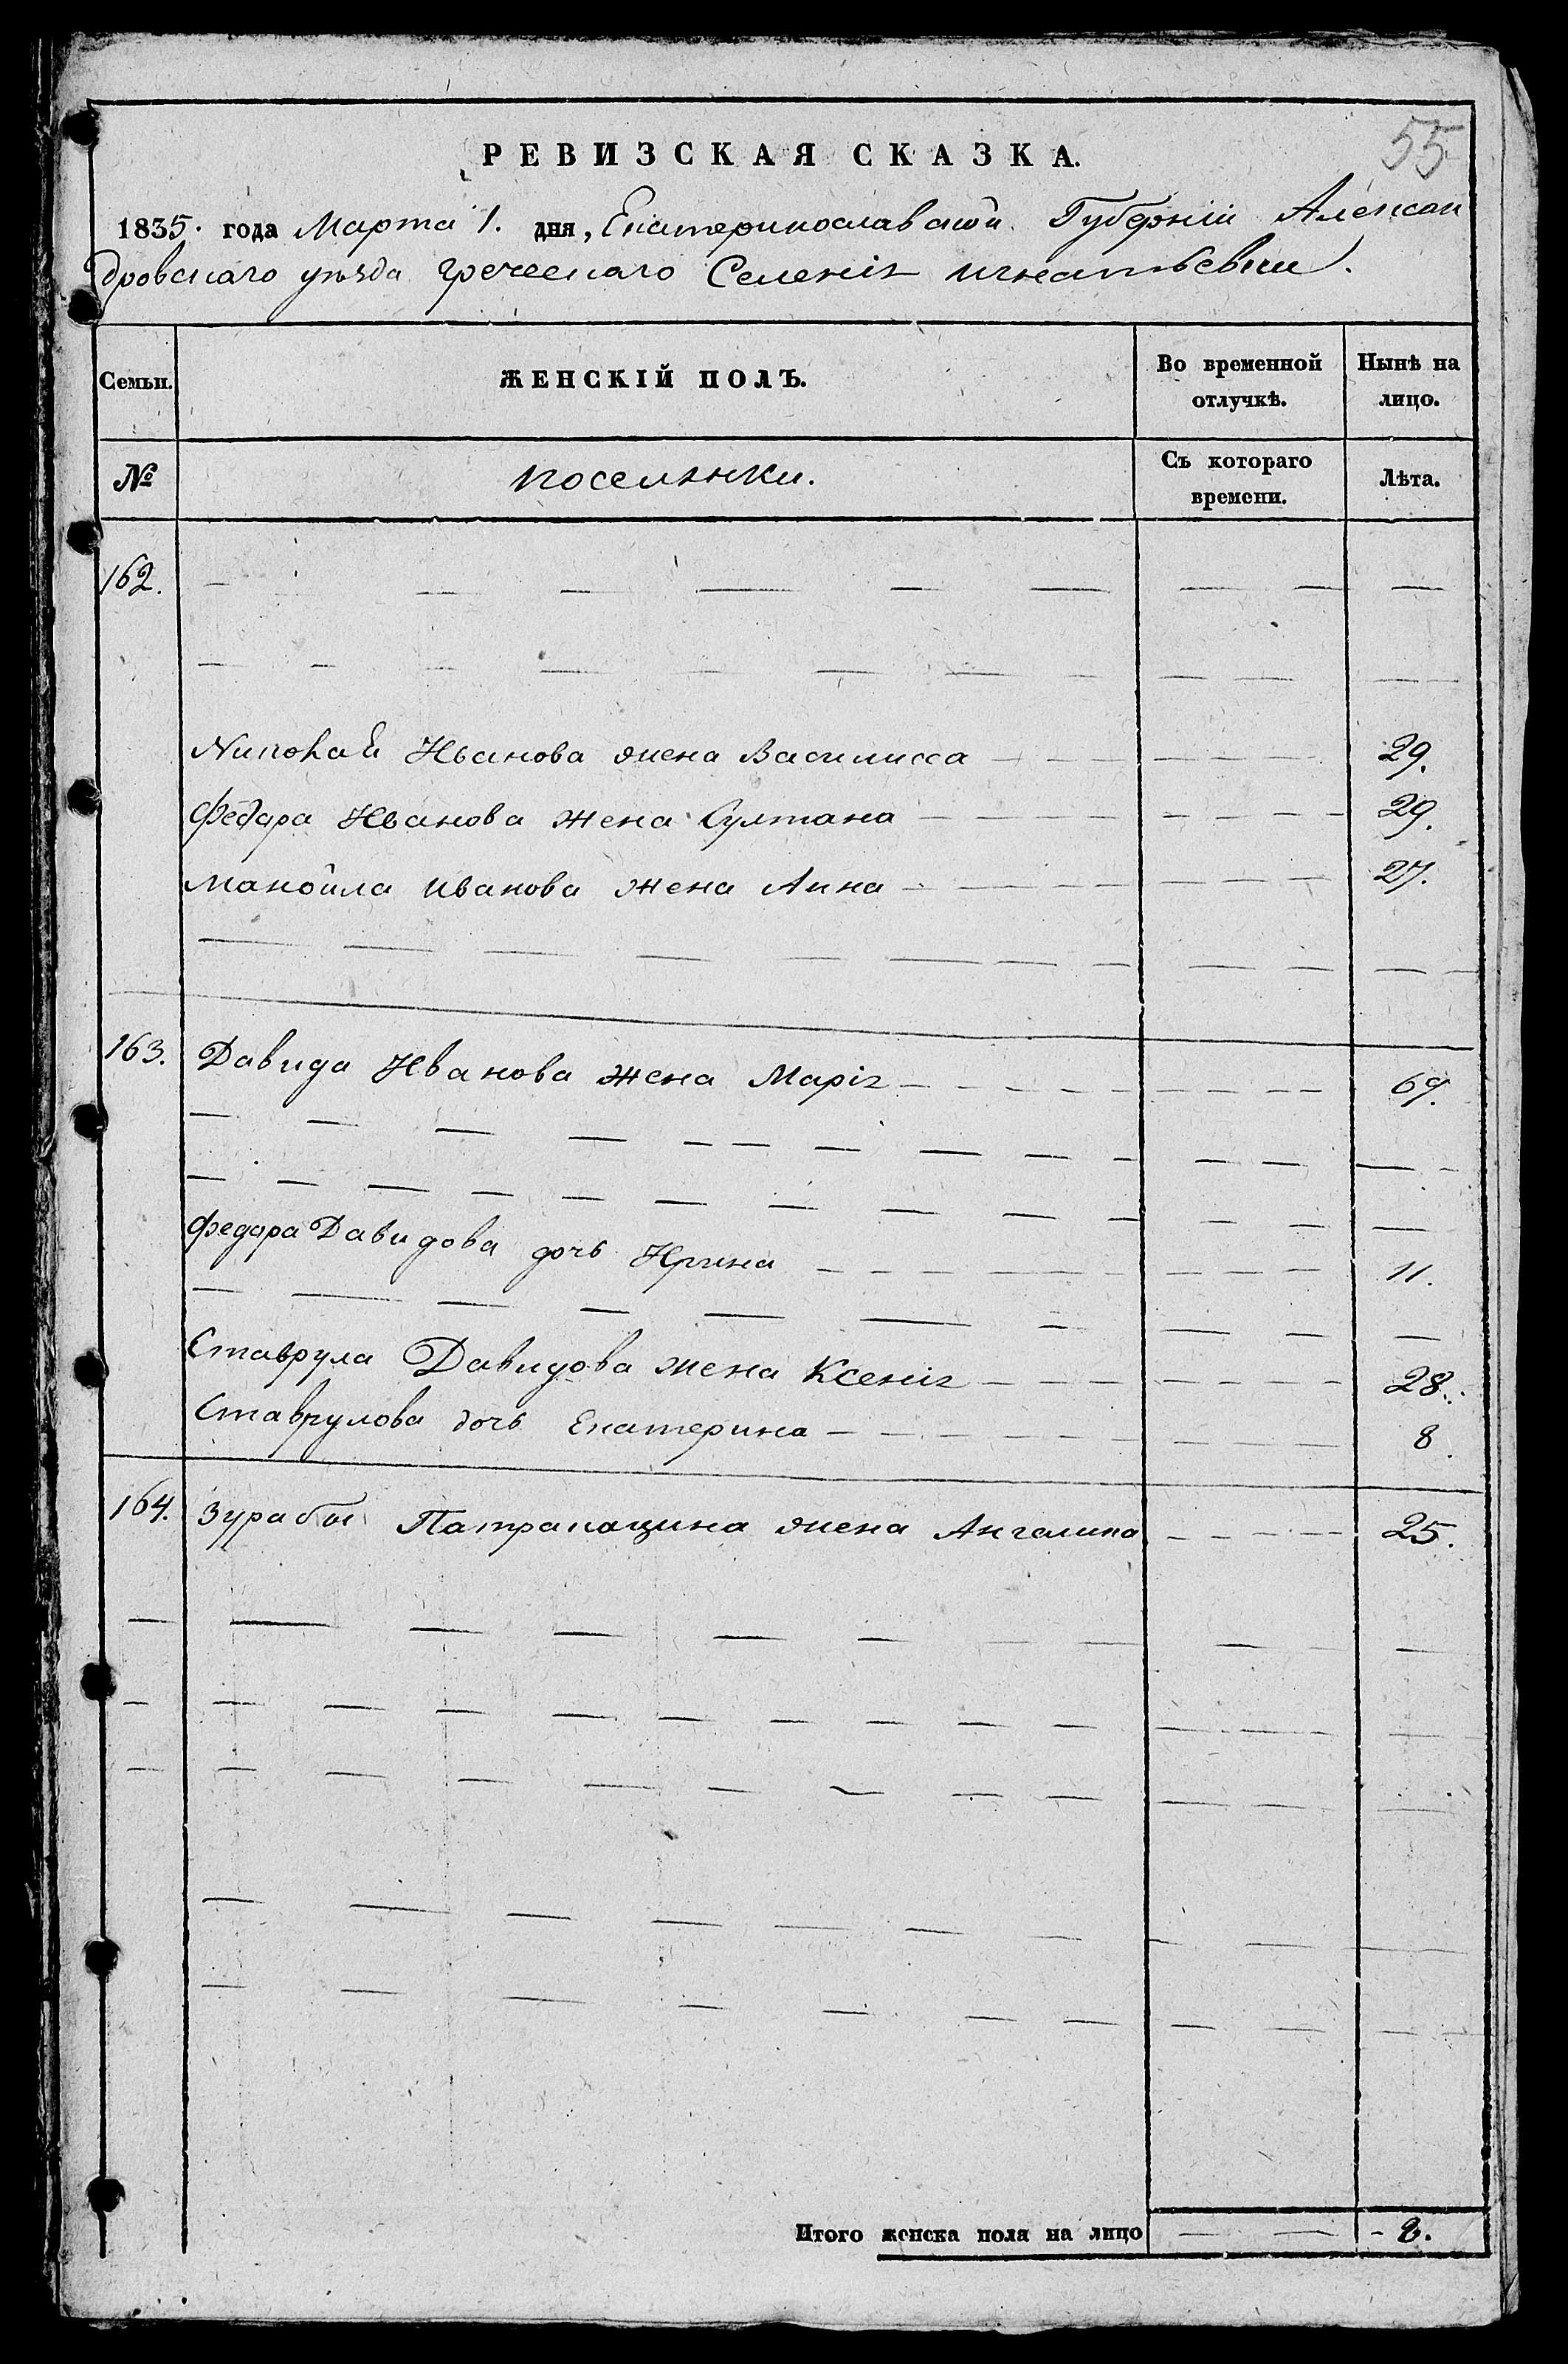 55
РЕВИЗСКАЯ СКАЗКА.
1835. года Марта 1. дня, Екатеринославской Губерніи Алексан
дровскаго уѣзда греческаго Селенія Игнатьевки.
Семьи. ЖЕНСКІЙ ПОЛЪ. Во временной отлучкѣ. Нынѣ на лицо.
№ поселянки. Съ котораго времени. Лѣта.
162. — — — — — — — — —
— — — — — — — — — — — —
Николай Иванова жена Василисса — — — — — — 29.
Федора Иванова жена Султана — — — — — — — — 29.
Манойла Иванова жена Анна — — — — — — — — 27.
— — — — — — — — — — — —
163. Давида Иванова жена Марія — — — — — — — — 69.
— — — — — — — — — — — — — —
— — — — — — — — — — — — —
Федора Давидова дочь Ирина — — — — — — — — 11.
— — — — — — — — — —
Ставрула Давидова жена Ксенія — — — — — — — — 28.
Ставрулова дочь Екатерина — — — — — — — — — 8.
164. Зурабы жена Ангелина — — — — 25.
— — — — — — — — — — —
— — — — — — — — — — — — — —
— — — — — — — — — — — — —
— — — — — — — — — —
— — — — — — — — — — —
Итого женска пола на лицо — — - 8.